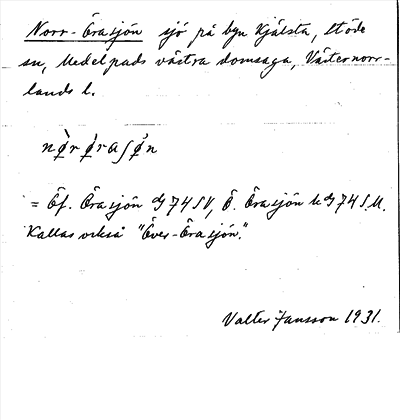 Norr-Örasjön sjö på byn Kjälsta, Stöde
sn, Medelpads västra domsaga, Västernorr-
lands l.
nø̀rø̀raʃø̀n
= Öf. Örasjön 74 SV, Ö. Örasjön 74 S.M.
Kallas också "Över-Örasjön".
Valter Jansson 1931.